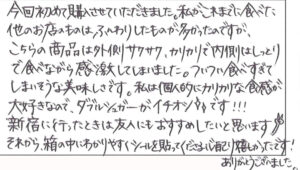 今回初めて購入させていただきました。私がこれまでに食べた
他のお店のものは、ふんわりしたものが多かったのですが、
こちらの商品は外側サクサク、カリカリで内側はしっとり
で食べながら感激してしまいました。ついつい食べすぎて
しまいそうな美味しさです。私は個人的にカリカリな食感が
大好きなので、ダブルシュガーがイチオシです!!!
新宿に行ったときは友人にもおすすめしたいと思います
それから、箱の中にわかりやすくシールを貼ってくださる心配り嬉しかったです!
ありがとうございました。